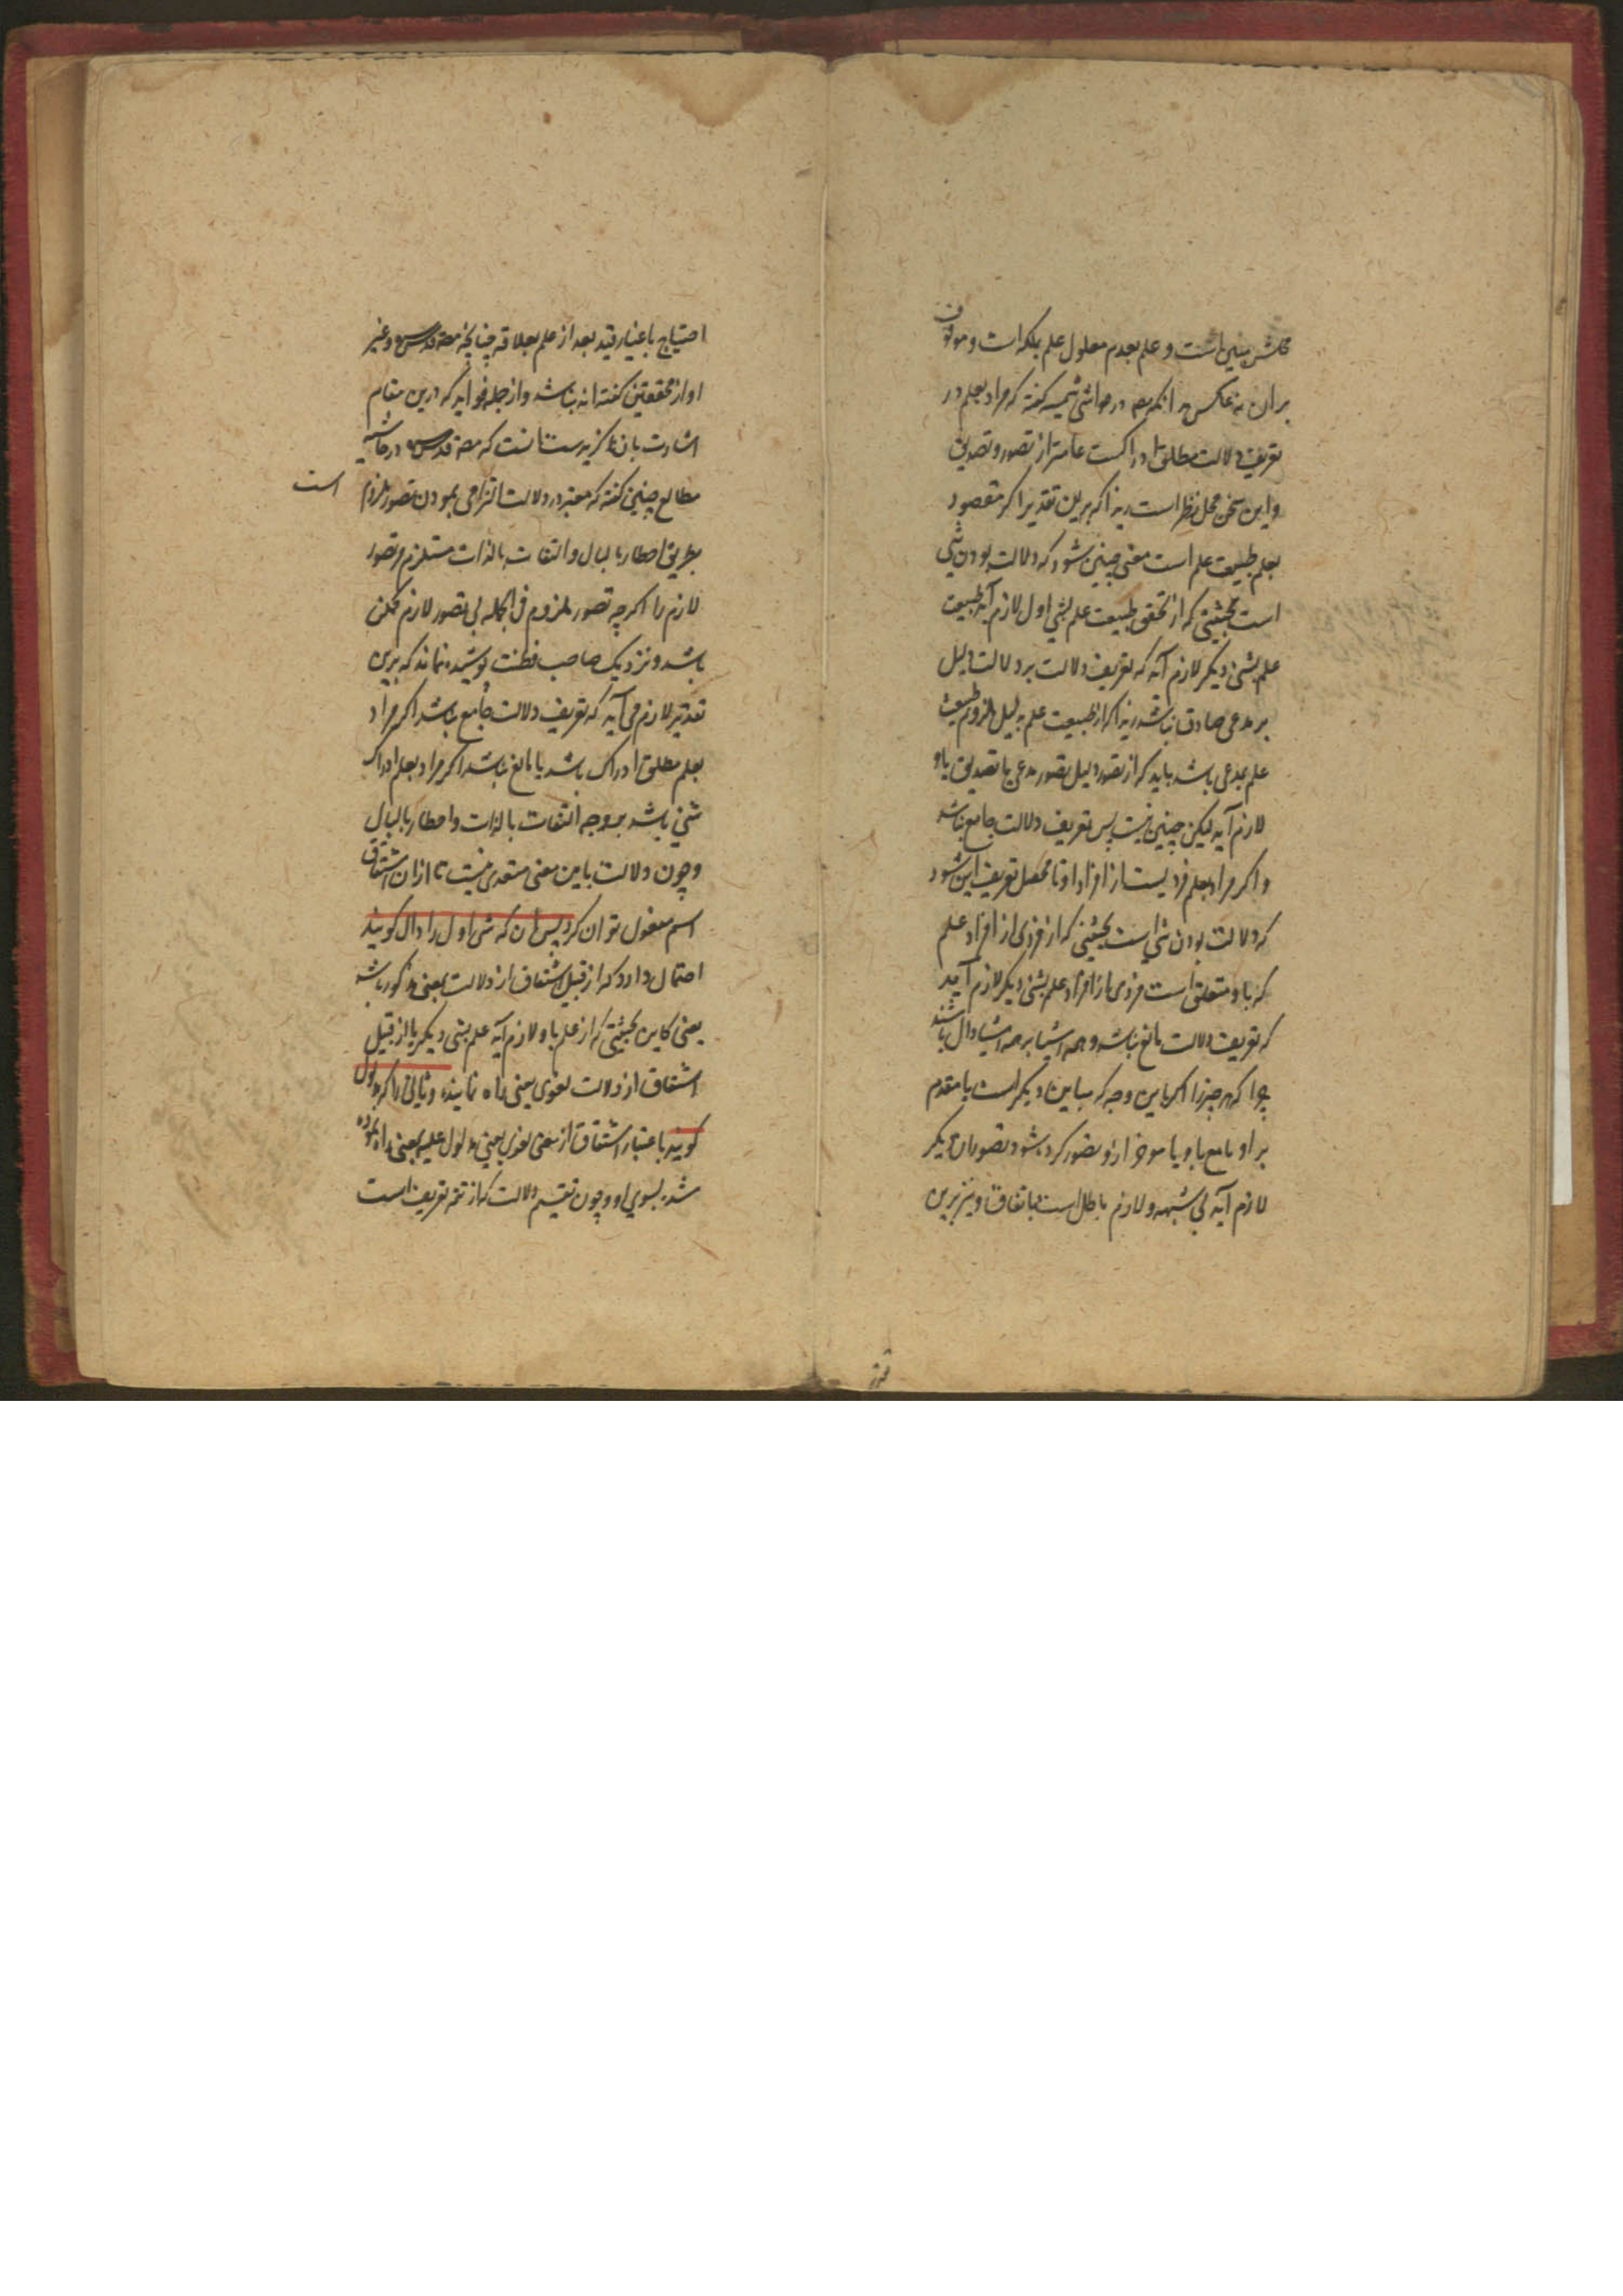 محلش مبین است و علم بعدم معلول علم بملکه است و موقوف
بران نه عکس و انکه مصه در حواشی شمسیه گفته که مراد بعلم در
تعریف دلالت مطلق ادراکست عامتر از تصور و تصدیق
و این سخن محل نظر است زیرا که برین تقدیر اگر مقصود
بعلم طبیعت علم است معنی چنین شود که دلالت بودن شی
است بحیثیتی که از تحقق طبیعت علم بشی اول لازم آید طبیعت
علم بشی دیگر لازم آید که تعریف دلالت بر دلالت دلیل
بر مدعی صادق نباشد زیرا که از طبیعت علم بدلیل ملزوم طبیعت
علم بمدعی باشد باید که از تصور دلیل تصور مدعی یا تصدیق باو
لازم آید لیکن چنین نیست پس تعریف دلالت جامع نباشد
و اگر مراد بعلم فردیست از افراد او تا محصل تعریف این شود
که دلالت بودن شی است بحیثیتی که از فردی از افراد علم
که باو متعلق است فردی از افراد علم بشی دیگر لازم آید
که تعریف دلالت مانع نباشد و همه اشیا بر همه اشیا دال باشند
چرا که هر چیز را اگر باین وجه که مباین دیگر است یا مقدم
بر او یا مع باو یا موخر ازو تصور کرده شود تصور ان دیگر
لازم آید بی شبهه و لازم باطل است باتفاق و نیز برین
احتیاج باعتبار قید بعد از علم بعلاقه چنانچه مصه قدس سره و غیر
او از محققین گفته اند نباشد و از جمله فوایدی که درین مقام
اشارت بان ناگزیرست انست که مصه قدس سره در حاشیه
مطالع چنین گفته که معتبر در دلالت التزامی بودن تصور ملزوم است
بطریق اخطار بالبال و التفات بالذات مستلزم تصور
لازم را اگرچه تصور ملزوم فی الجمله بی تصور لازم ممکن
باشد و نزدیک صاحب فطنت پوشیده نماند که برین
تقدیر لازم می آید که تعریف دلالت جامع نباشد اگر مراد
بعلم مطلق ادراک باشد یا مانع نباشد اگر مراد بعلم ادراک
شی باشد بر وجه التفات بالذات و اخطار بالبال
و چون دلالت باین معنی متعدی نیست تا ازان اشتقاق
اسم مفعول توان کرد پس ان که شی اول را دال گویند
احتمال دارد که از قبیل اشتقاق از دلالت بمعنی مذکور باشد
یعنی کاین بحیثیتی که از علم باو لازم آید علم بشی دیگر یا از قبیل
اشتقاق از دلالت لغوی یعنی راه نماینده و ثانی را که مدلول
گویند باعتبار اشتقاق از معنی لغوی یعنی مدلول علیه بمعنی راه نموده
شده بسوی او و چون تقسیم دلالت که از تتمه تعریف است